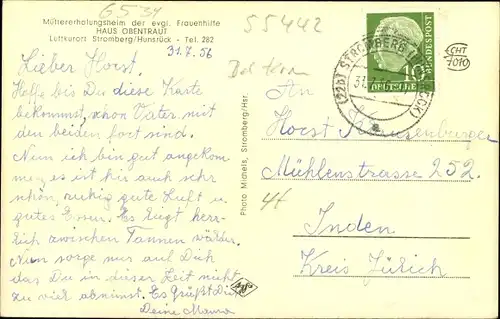 6534
55442
Müttererholungsheim der evgl. Frauenhilfe
HAUS OBENTRAUT
Luftkurort Stromberg/Hunsrück - Tel. 282
31.7.56
Lieber Horst.
Hoffe bis Du diese Karte
bekommst, schon Vater mit
den beiden fort sind.
Nun ich bin gut angekom
men, es ist hir auch sehr
schön, ruhig gute Luft u.
gutes Essen. Es liegt herr-
lich zwischen Tannen wälder.
Nun sorge nur auf Dich
das Du in dieser Zeit nicht
zu viel abnimst. Es Grüßt Dich
Deine Mama
Photo Michels, Stromberg/Hsr.
(22b) STROMBERG (HUNSRÜCK)
10
DEUTSCHE
BUNDESPOST
CHT
7010
An
Horst
Mühlenstrasse 252.
Inden
Kreis Jülich